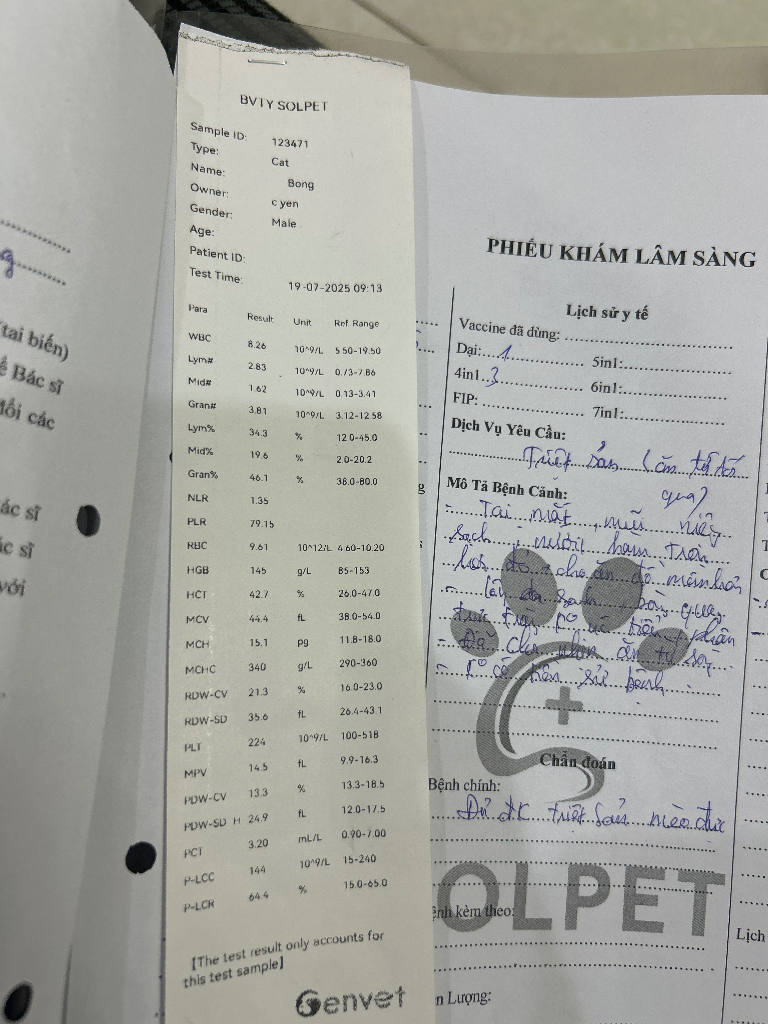 g
(tai biến)
Bác sĩ
đổi các
ác sĩ
ác sĩ
với
BVTY SOLPET
Sample ID: 123471
Type: Cat
Name: Bong
Owner: c yen
Gender: Male
Age:
Patient ID:
Test Time: 19-07-2025 09:13
Para Result Unit Ref Range
WBC 8.26 10^9/L 5.50-19.50
Lym# 2.83 10^9/L 0.73-7.86
Mid# 1.62 10^9/L 0.13-3.41
Gran# 3.81 10^9/L 3.12-12.58
Lym% 34.3 % 12.0-45.0
Mid% 19.6 % 2.0-20.2
Gran% 46.1 % 38.0-80.0
NLR 1.35
PLR 79.15
RBC 9.61 10^12/L 4.60-10.20
HGB 145 g/L 85-153
HCT 42.7 % 26.0-47.0
MCV 44.4 fL 38.0-54.0
MCH 15.1 pg 11.8-18.0
MCHC 340 g/L 290-360
RDW-CV 21.3 % 16.0-23.0
RDW-SD 35.6 fL 26.4-43.1
PLT 224 10^9/L 100-518
MPV 14.5 fL 9.9-16.3
PDW-CV 13.3 % 13.3-18.5
PDW-SD H 24.9 fL 12.0-17.5
PCT 3.20 mL/L 0.90-7.00
P-LCC 144 10^9/L 15-240
P-LCR 64.4 % 15.0-65.0
[The test result only accounts for
this test sample]
Genvet
PHIẾU KHÁM LÂM SÀNG
Lịch sử y tế
Vaccine đã dùng:
Dại: 1 5in1:
4in1 3 6in1:
FIP: 7in1:
Dịch Vụ Yêu Cầu:
Triệt sản (ăn tử tế
qua)
Mô Tả Bệnh Cảnh:
- Tai mắt, mũi, miệng
sạch, nướu hàm trên
hơi đỏ, cho ăn đồ mềm hơn
- lông da sạch, bàng quang
trực tràng phân
-
- tiền sử bệnh
Chẩn đoán
Bệnh chính:
Đủ ĐK triệt sản mèo đực
SOLPET
ệnh kèm theo:
Lịch
n Lượng: